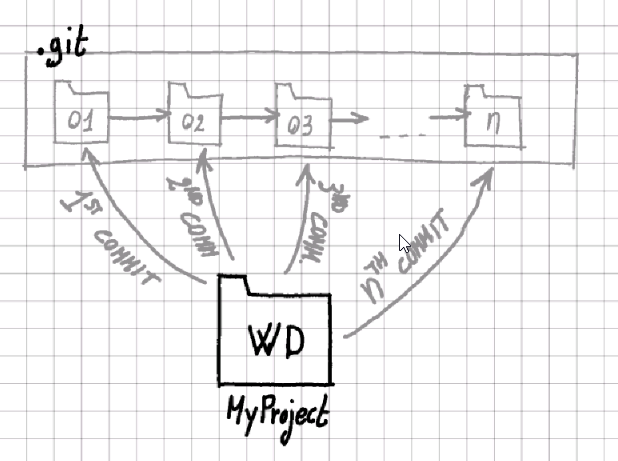 .git
01
02
03
n
1ST COMMIT
2ND COMM
3RD COMM.
nTH COMMIT
WD
MyProject